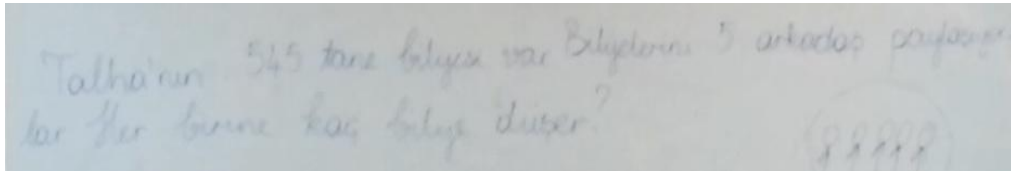 Talha'nın 545 tane bilyesi var Bilyelerini 5 arkadaş paylaşıyor
lar Her birine kaç bilye düşer?